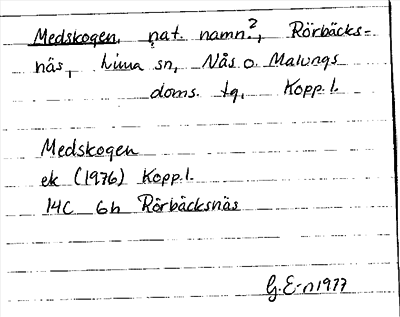 Medskogen, nat. namn?, Rörbäcks=
näs, Lima sn, Nås o. Malungs
doms. tg, Kopp. l.
Medskogen
ek (1976) Kopp. l.
14C 6h Rörbäcksnäs
G. E-n 1977